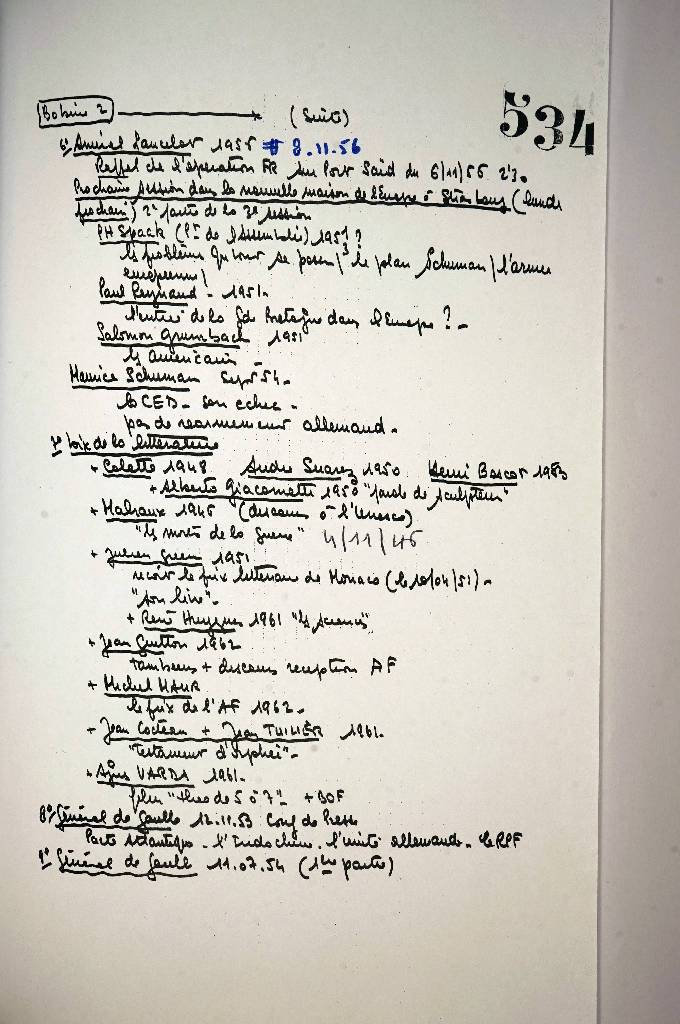 Bobine 2 (Suite)
534
6°/ Amiral Lancelot 1955 # 8.11.56
Rappel de l'opération FR sur Port Said du 6/11/56 2'30
Prochaine session dans la nouvelle maison de l'Europe à Strasbourg (lundi
prochain) 2e partie de la 3e session
PH Spaak (Pt de l'Assemblée) 1951 ?
les problèmes qui se posent / le plan Schuman / l'armée
européenne /
Paul Reynaud - 1951 -
l'entrée de la Gde Bretagne dans l'Europe ? -
Salomon Grumbach 1951
les américains
Maurice Schuman Sept 54 -
la CED - son echec -
pas de rearmement allemand -
7° Voix de la litterature
+ Colette 1948 André Suarez 1950 Henri Boscot 1953
+ Alberto Giacometti 1950 "parole de sculpteur"
+ Malraux 1946 (discours à l'Unesco)
"les morts de la guerre" 4/11/46
+ Julien Green 1951
reçoit le prix litteraire de Monaco (le 10/04/51) -
"son livre" -
+ René Huyghes 1961 "les sciences"
+ Jean Guitton 1962
tambours + discours reception AF
+ Michel MAUR
le prix de l'AF 1962 -
+ Jean Cocteau + Jean THUILIER 1961 -
"Testament d'Orphée" -
+ Agnès VARDA 1961 -
film "Cleo de 5 à 7" + BOF
8°/ Général de Gaulle 12.11.53 Conf de Presse
Pacte Atlantique - l'Indochine - l'unité allemande - le RPF
9° Général de Gaulle 11.07.54 (1ère partie)